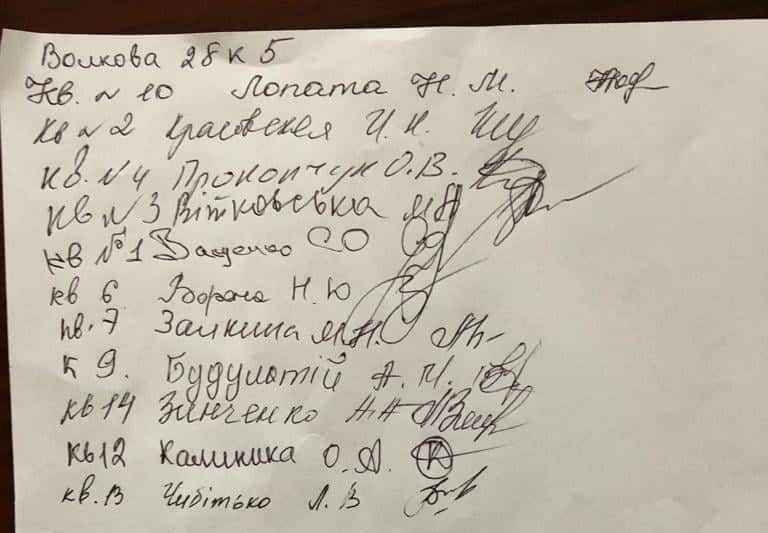 Волкова 28 к 5
Кв. № 10 Лопата Н. М.
Кв № 2 Красовская И. Н.
Кв. № 4 Прокопчук О. В.
Кв № 3 Вітковська М Я
Кв № 1 Ващенко СО
Кв 6 Ворона Н. Ю
Кв. 7 Залкина М. Н.
К 9. А. М.
Кв 14 Зинченко А. А
Кв 12 Калиника О. А.
Кв. 13 Чибітько Л. В